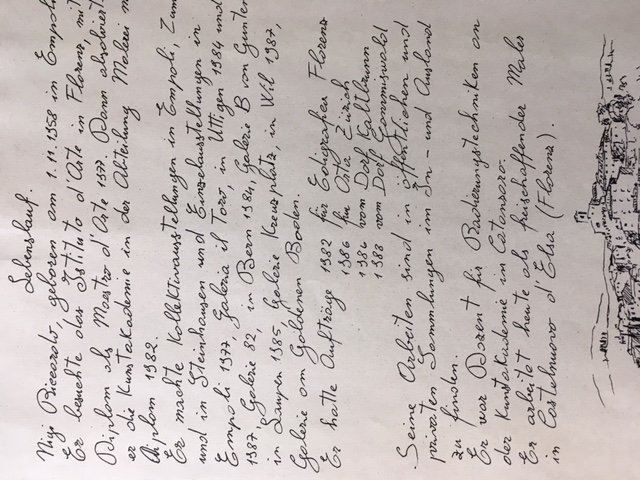 Lebenslauf.
Nigi Riccardo, geboren am 1.11.1958 in Empoli
Er besuchte das Istituto d'Arte in Florenz, mit
Diplom als Maestro d'Arte 1977. Dann absolviert
er die Kunstakademie in der Abteilung Malerei m
Diplom 1982.
Er machte Kollektivausstellungen in Empoli, Zum
und in Steinhausen und Einzelausstellungen in
Empoli 1977 Galeria il Toro, in Uttigen 1984 und
1987 Galerie 82, in Bern 1984, Galerie B von Gunten
in Laupen 1985 Galerie Kreuzplatz, in Wil 1987,
Galerie am Goldenen Boden.
Er hatte Aufträge 1982 für Eoligrafica Florenz
1986 für Oster Zürich
1986 vom Dorf Kaltbrunn
1988 vom Dorf Gommiswald
Seine Arbeiten sind in öffentlichen und
privaten Sammlungen im In- und Ausland
zu finden.
Er war Dozent für Radierungstechniken an
der Kunstakademie in Catanzaro.
Er arbeitet heute als freischaffender Maler
in Castelnuovo d'Elsa (Florenz).